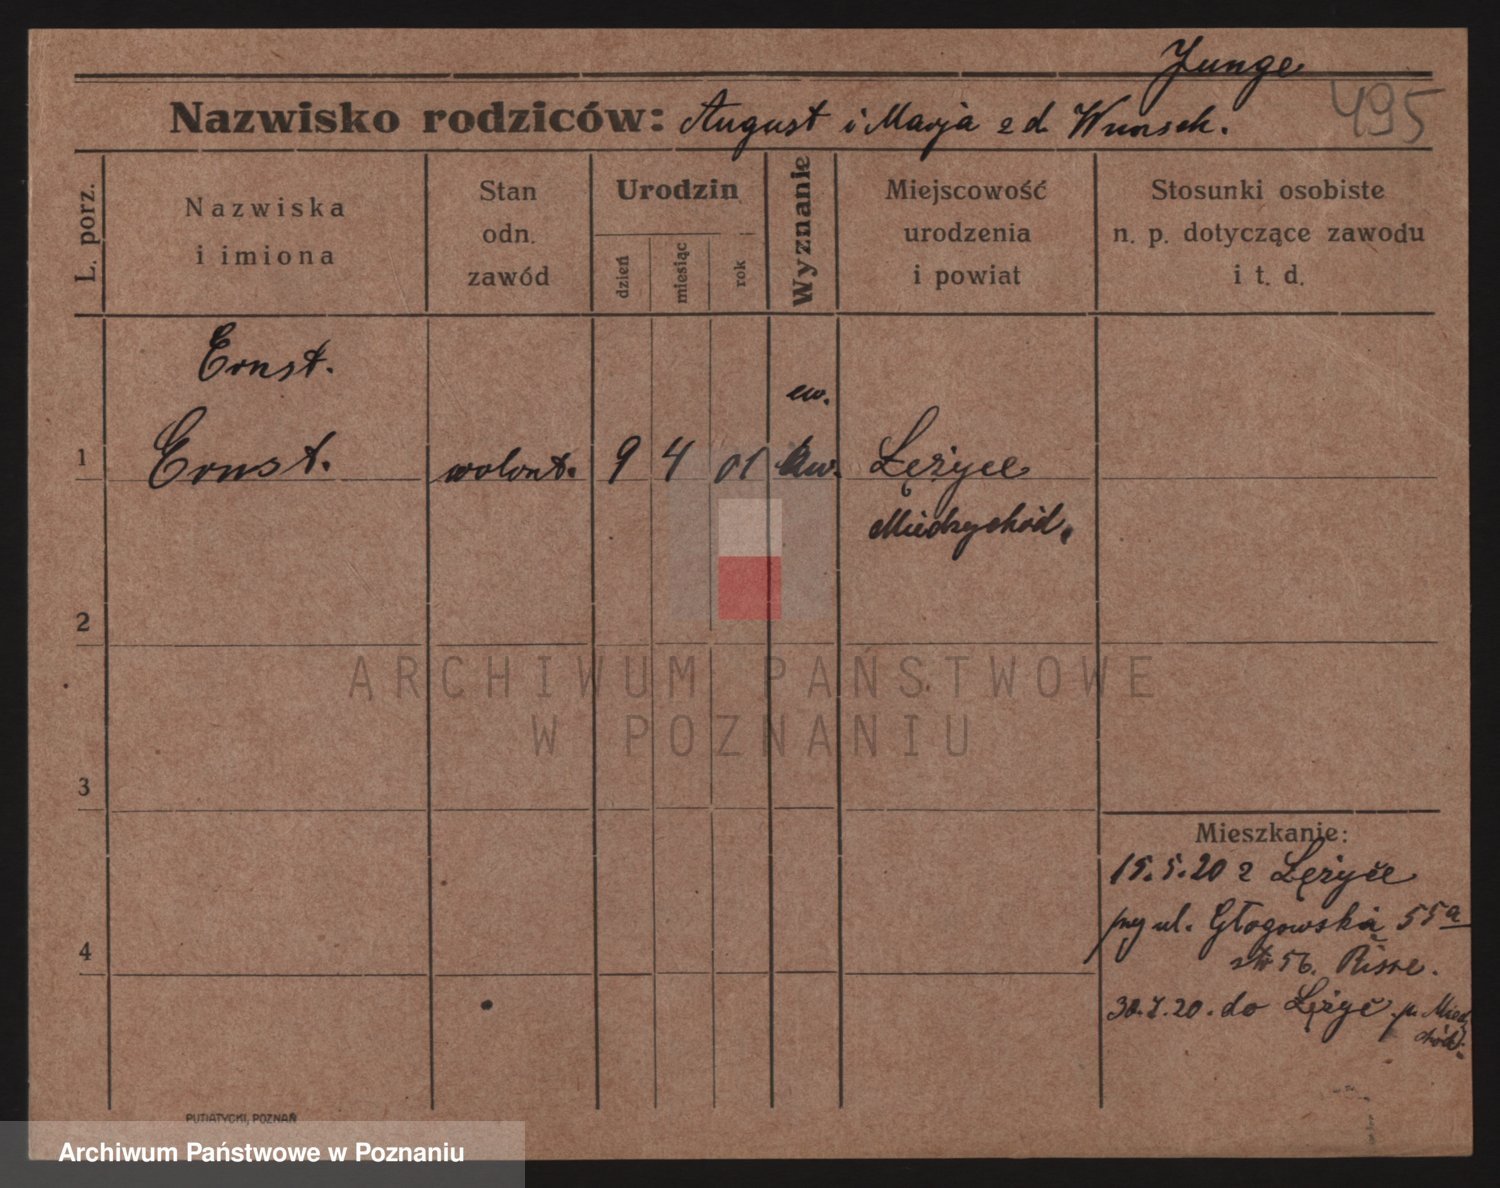 Junge
495
Nazwisko rodziców: August i Marja z d. Wunsch.
L. porz.
Nazwiska
i imiona
Stan
odn.
zawód
Urodzin
dzień
miesiąc
rok
Wyznanie
Miejscowość
urodzenia
i powiat
Stosunki osobiste
n. p. dotyczące zawodu
i t. d.
Ernst.
ew.
1 Ernst. wolont. 9 4 01 ew. Łężyce
Międzychód.
2
3
4
Mieszkanie:
15.5.20 z Łężyce
przy ul. Głogowska 55a
56.
30.7.20. do Łężyc. p. Międ
chód.
ARCHIWUM PAŃSTWOWE
W POZNANIU
PUTIATYCKI, POZNAŃ
Archiwum Państwowe w Poznaniu